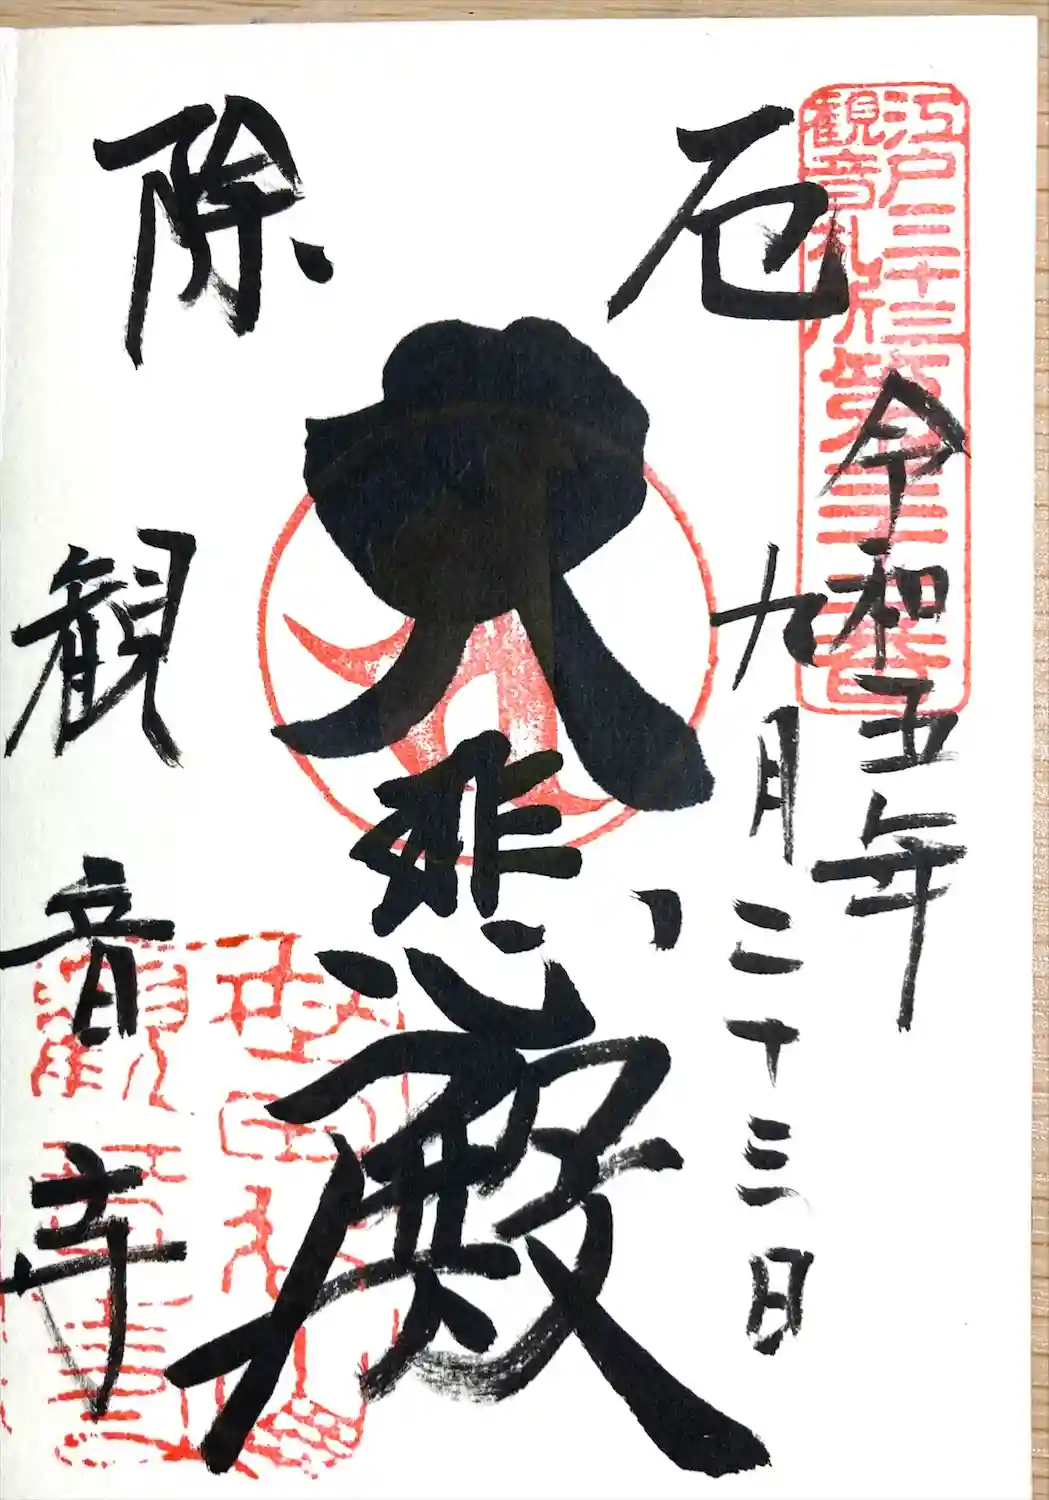 江戸三十三
観音札所
第三十二番
令和五年
九月二十三日
厄除
大悲殿
観音寺